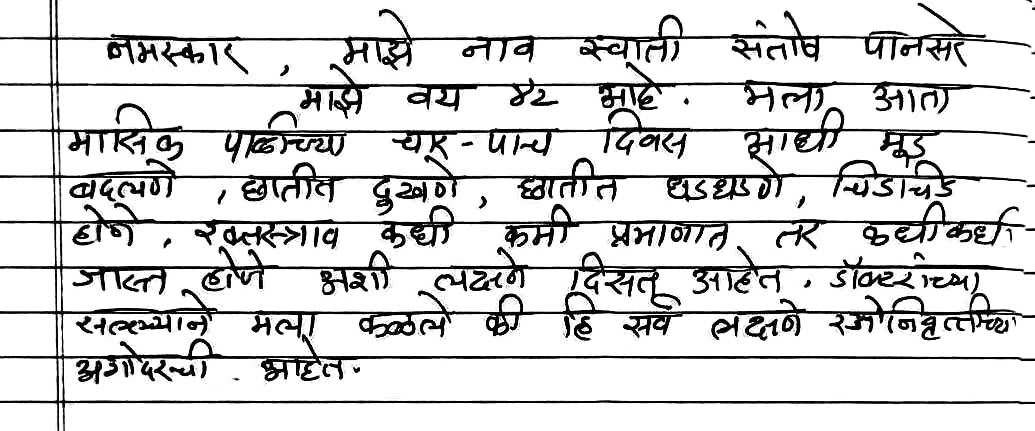 नमस्कार, माझे नाव स्वाती संतोष पानसरे
माझे वय ४२ आहे. मला आता
मासिक पाळीच्या चार-पाच दिवस आधी मूड
बदलणे, छातीत दुखणे, छातीत धडधडणे, चिडचिड
होणे, रक्तस्त्राव कधी कमी प्रमाणात तर कधीकधी
जास्त होणे अशी लक्षने दिसत आहेत. डॉक्टरांच्या
सल्ल्याने मला कळले की हि सर्व लक्षने रजोनिवृत्तीच्या
अगोदरची आहेत.